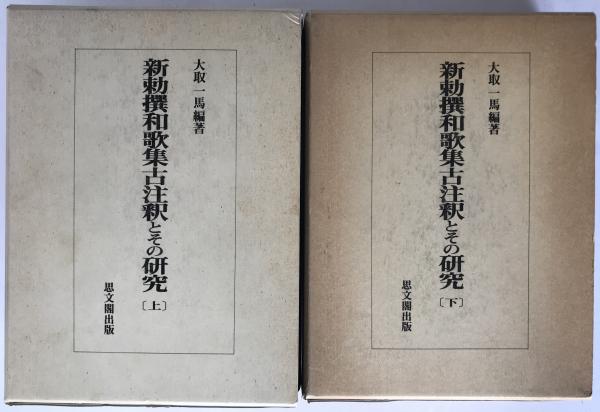 大取一馬編著
新勅撰和歌集古注釈とその研究〔上〕
思文閣出版
大取一馬編著
新勅撰和歌集古注釈とその研究〔下〕
思文閣出版